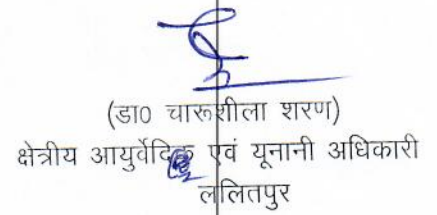 (डा0 चारूशीला शरण)
क्षेत्रीय आयुर्वेदिक एवं यूनानी अधिकारी
ललितपुर